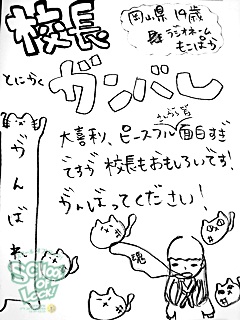 校長
岡山県 19歳
ラジオネーム
もこぱか
とにかく
ガンバレ
がんばれ
大喜利、ピースフル
面白すぎ
ですが 校長もおもしろいです!
がんばってください!
魂
SCHOOL
OF
LOCK!